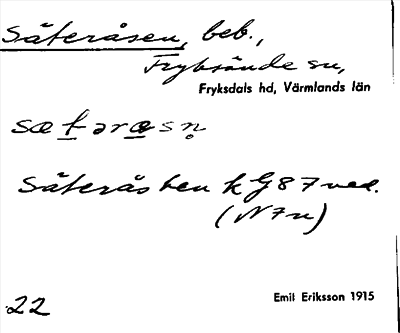 Säteråsen, beb.,
Fryksände sn,
Fryksdals hd, Värmlands län
sætəråsn̥
Säterås ben k G87 ned.
(N7n)
22
Emil Eriksson 1915